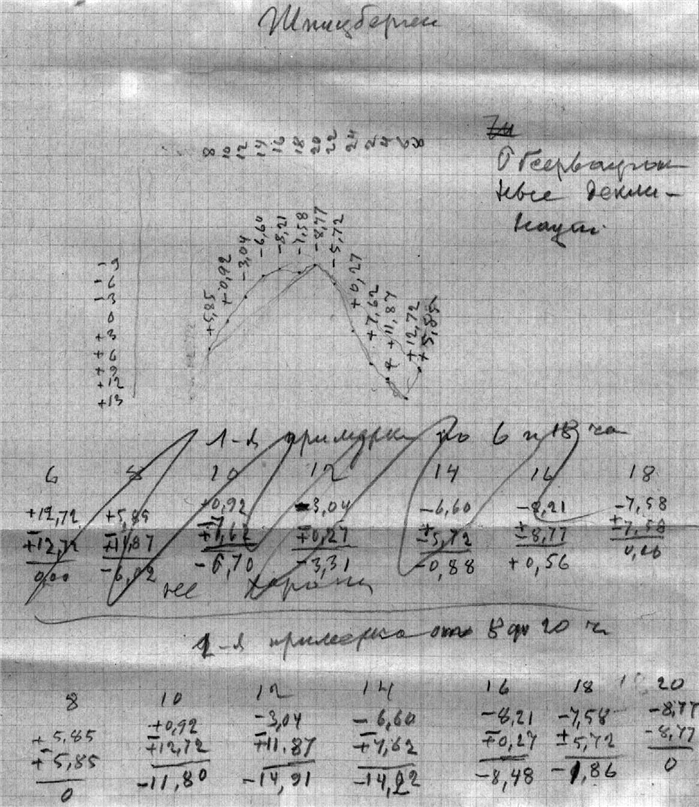 Шпицберген
8 10 12 14 16 18 20 22 24 2 4 6 8
Обсервацион
ные декли-
нации
+5,85 +0,92 -3,04 -6,60 -8,21 -7,58 -8,77 -5,72 +0,27 +7,62 +11,87 +12,72 +5,85
-9
-6
-3
0
+3
+6
+9
+12
+13
1-я примерка по 6 и 18 час
6 8 10 12 14 16 18
+12,72 +5,85 +0,92 -3,04 -6,60 -8,21 -7,58
+12,72 +11,87 +7,62 +0,27 -5,72 -8,77 -7,58
0,00 -6,02 -6,70 -3,31 -0,88 +0,56 0,00
не хороша
2-я примерка от 8 до 20 ч
8 10 12 14 16 18 20
+5,85 +0,92 -3,04 -6,60 -8,21 -7,58 -8,77
+5,85 +12,72 +11,87 +7,62 +0,27 -5,72 -8,77
0 -11,80 -14,91 -14,22 -8,48 -1,86 0